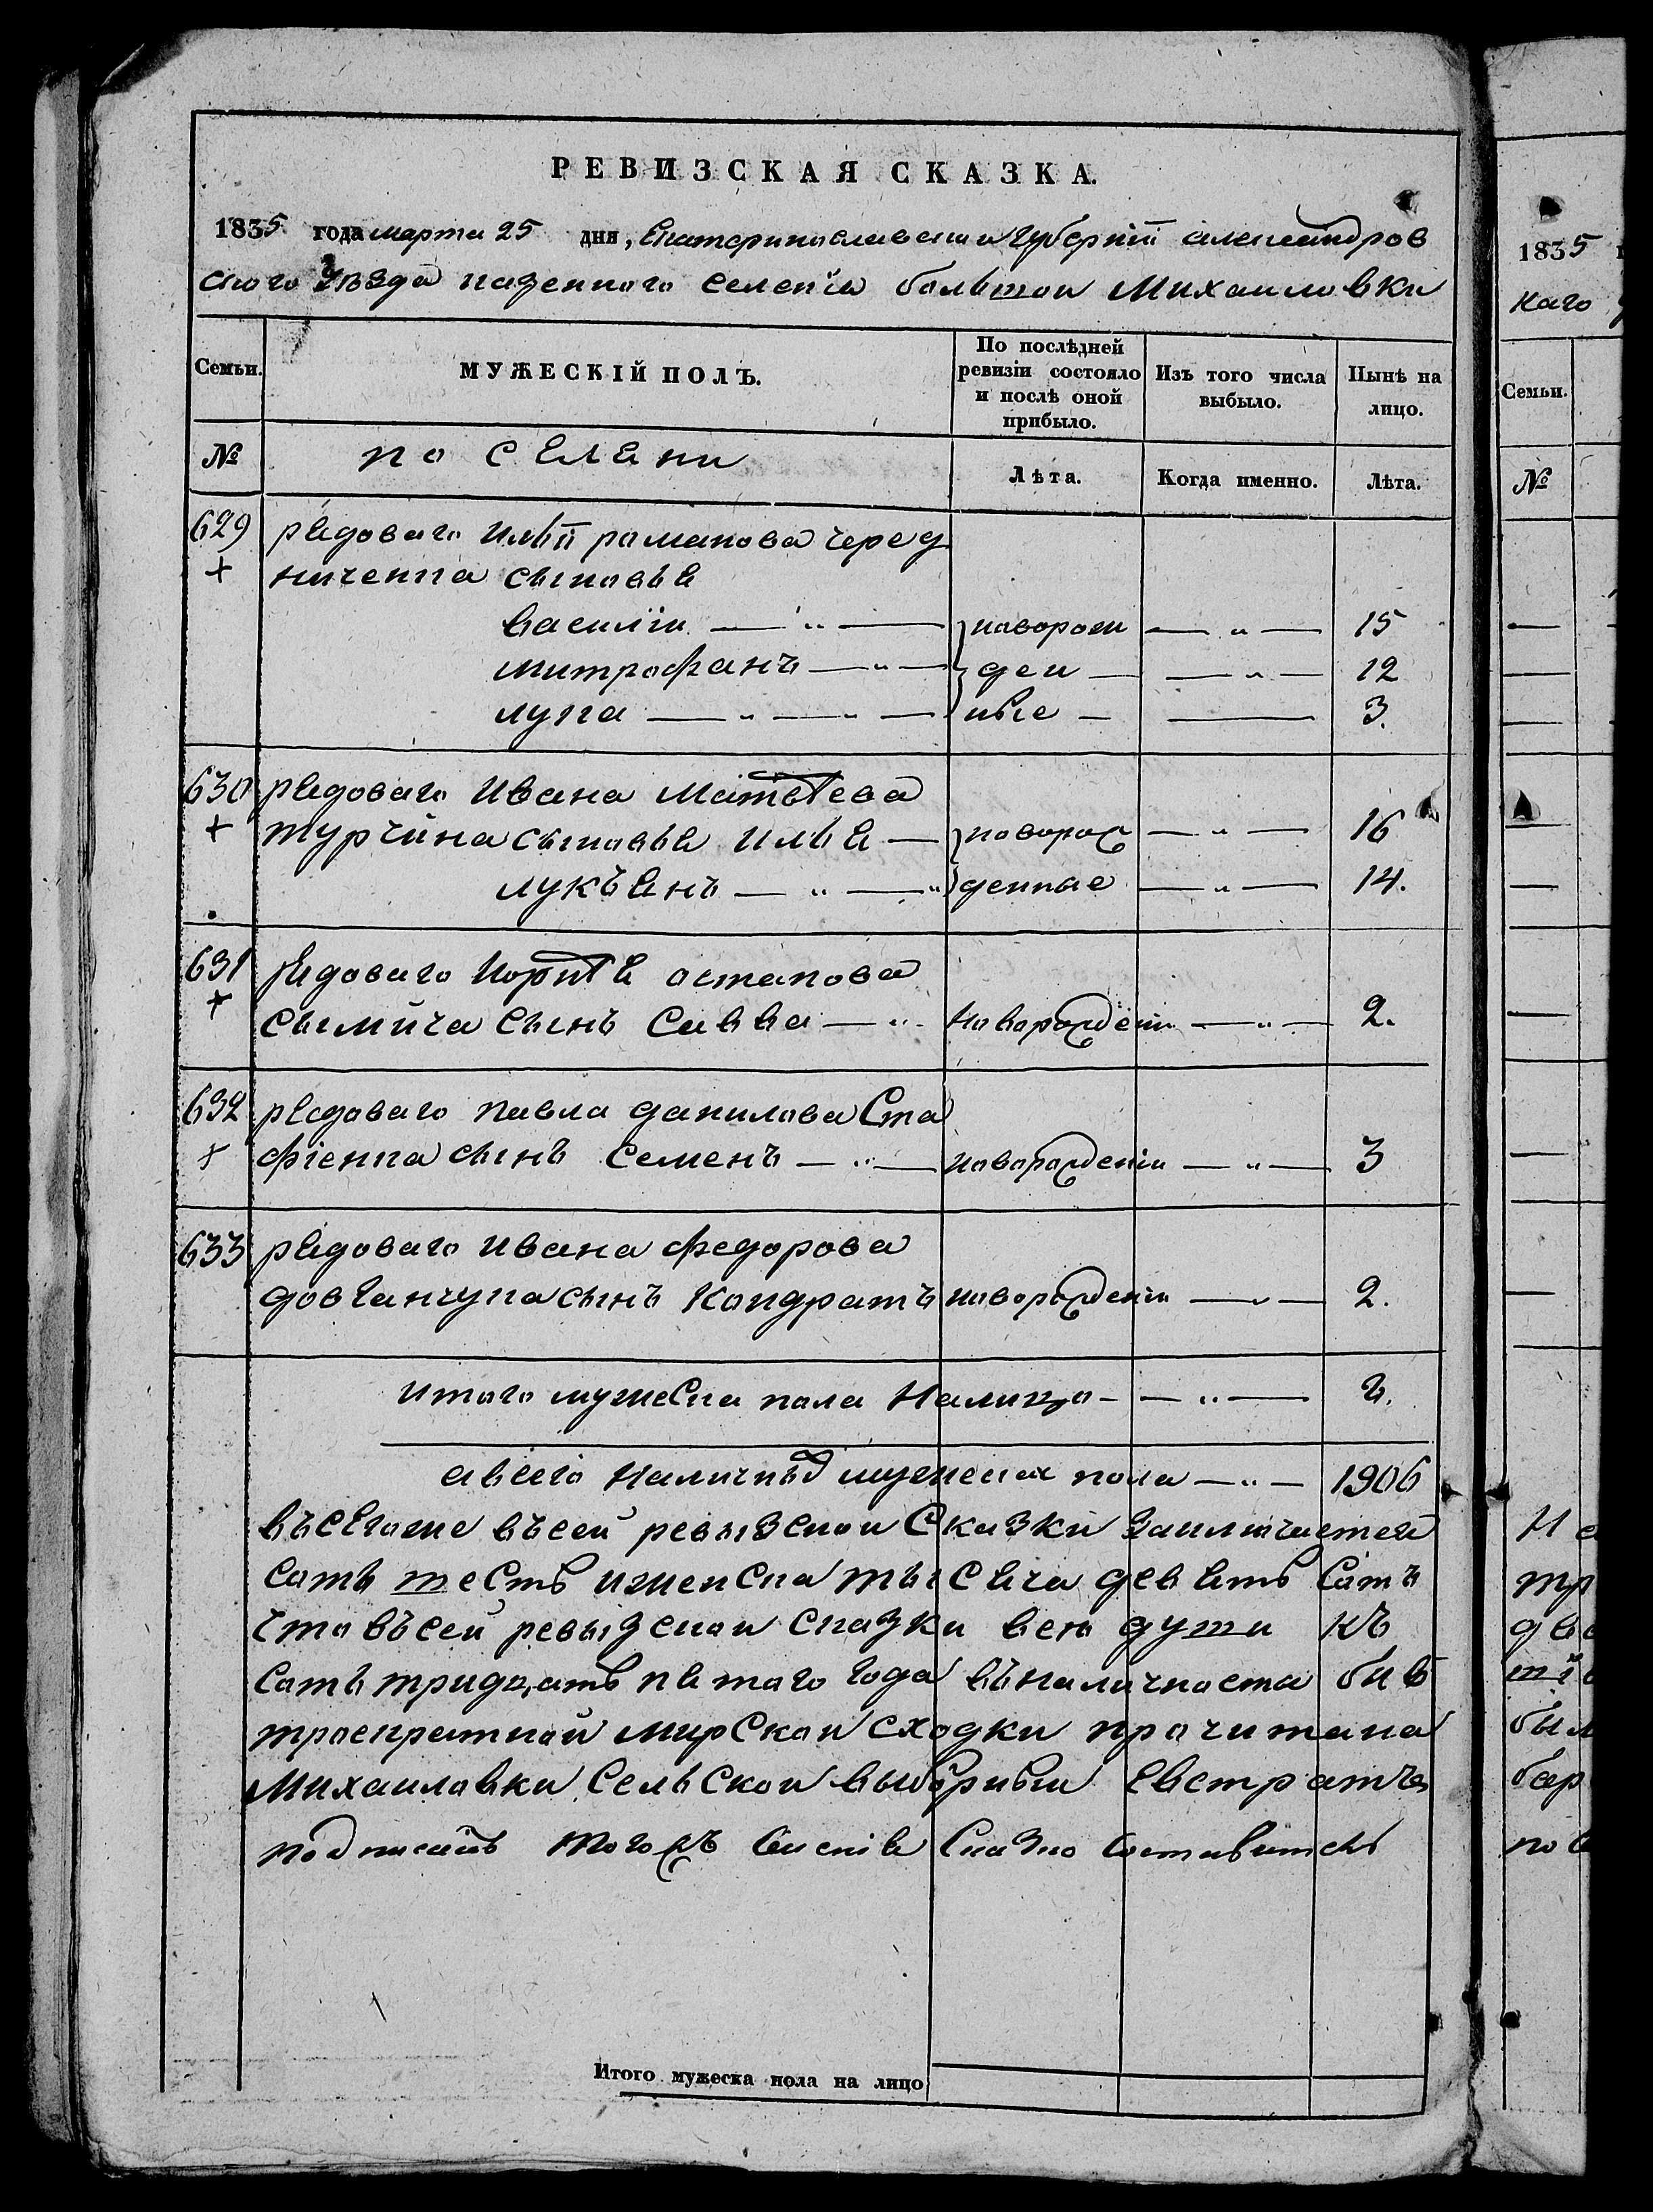 РЕВИЗСКАЯ СКАЗКА.
1835 года марта 25 дня, Екатеринославскои губерніи александров
ского уѣзда казенного селенія большои Михаиловки
Семьи.
МУЖЕСКІЙ ПОЛЪ.
По послѣдней ревизіи состояло и послѣ оной прибыло.
Изъ того числа выбыло.
Нынѣ на лицо.
№
по селени
Лѣта.
Когда именно.
Лѣта.
629 рядоваго Ильи романова черед
ниченка сыновья
василіи — " — новорож — " — 15
митрофанъ — " — ден — — " — 12
лука — " — " — ные — — 3.
630 рядоваго Ивана Матвѣева
турчина сыновья илья — новорож — " — 16
лукъянъ — " — " денные — " — 14.
631 рядоваго Корнѣя остапова
сынъ Савва — " новорожденн — " — 2.
632 рядоваго павла данилова Ста
фіенка сынъ семенъ — " — новорожденн — " — 3
633 рядоваго ивана федорова
довганчука сынъ Кондратъ новорожденн — " — 2.
итого мужеска пола Налицо - — " — 8.
авсего Наличныхъ мужеска пола — " — 1906
въсей ревызскои Сказки
сотъ шесть иженска тысяча девять Сотъ
что въсеи ревызскои сказки все души къ
сотъ тридцать пятаго года въналичности
троекратной мирской сходки прочитана
Михаиловки Сельскои выборныи Евстратъ
подписалъ тогожъ Сказко Составитель
Итого мужеска пола на лицо
1835
наго
Семьи.
№
тр
был
по